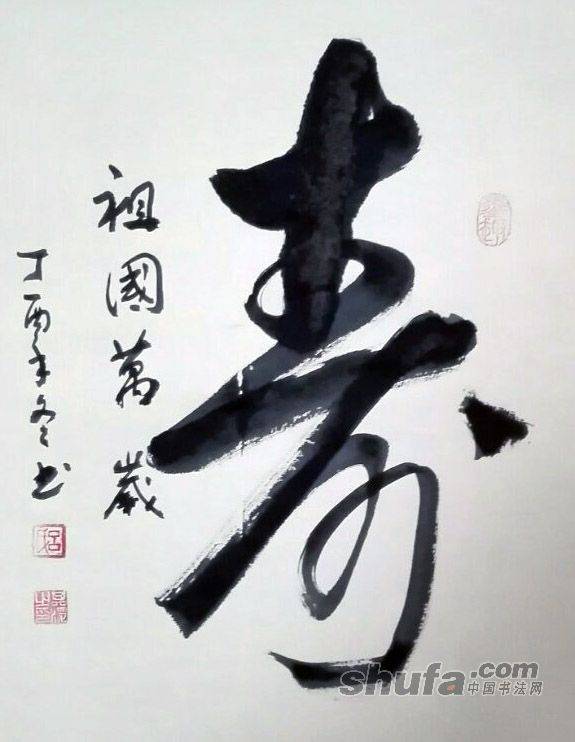 寿
祖國萬歲
丁酉年冬书
shufa.com
中国书法网